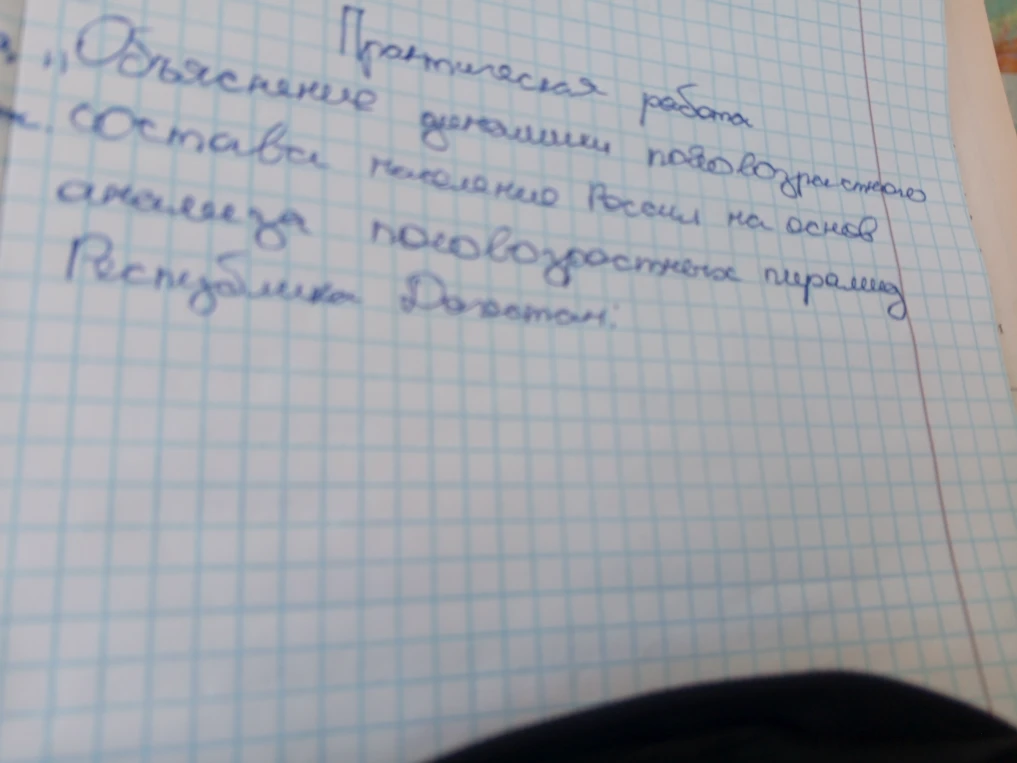 Практическая работа
„Объяснение динамики половозрастного
состава население России на основ
анализа половозрастных пирамид
Республика Дагестан: